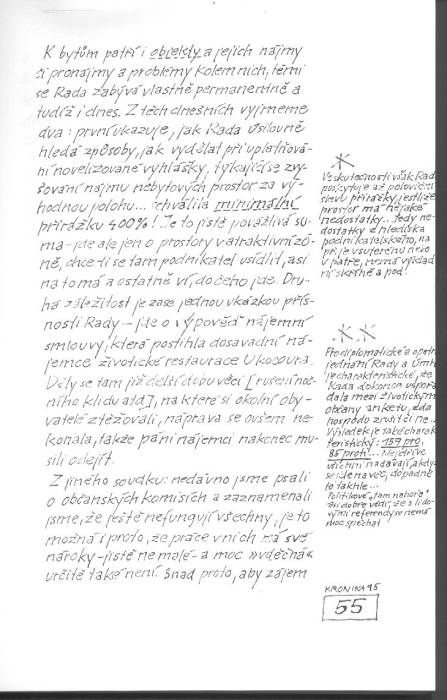 K bytům patří i objekty a jejich nájmy
či pronájmy a problémy kolem nich, těmi
se Rada zabývá vlastně permanentně a
tudíž i dnes. Z těch dnešních vyjmeme
dva: první ukazuje, jak Rada úsilovně
hledá způsoby, jak vydělat při uplatňová-
ní novelizované vyhlášky, týkající se zvy-
šování nájmu nebytových prostor za vý-
hodnou polohu... schválila minimální
přirážku 400%! Je to jistě povážlivá su-
ma - jde ale jen o prostory v atraktivní zó-
ně, chce-li se tam podnikatel usídlit, asi
na to má a ostatně ví, do čeho jde. Dru-
há záležitost je zase jednou ukázkou přís-
nosti Rady - jde o výpověď nájemní
smlouvy, která postihla dosavadní ná-
jemce životické restaurace U kocoura.
Děly se tam již delší dobu věci [rušení noč-
ního klidu atd.], na které si okolní oby-
vatelé ztěžovali, náprava se ovšem ne-
konala, takže páni nájemci nakonec mu-
sili odejít.
Z jiného soudku: nedávno jsme psali
o občanských komisích a zaznamenali
jsme, že ještě nefungují všechny, je to
možná i proto, že práce v nich má své
nároky - jistě ne malé - a moc »vděčná«
určitě také není. Snad proto, aby zájem
*
Ve skutečnosti však Rad
poskytuje až poloviční
slevu přirážky, jestliže
prostor má nějaké
nedostatky... Tedy ne-
dostatky z hlediska
podnikatelského, na
př. je v suterénu nebo
v patře, nemá výklad-
ní skříně a pod!
**
Pro diplomatické a opatr
jednání Rady a Úřadu
je charakteristické, že
Rada dokonce uspořá-
dala mezi životickými
občany anketu, zda
hospodu zrušit či ne...
Výsledek je také charak
teristický: 159 pro,
85 proti... Nejdříve
všichni nadávají, a když
se jde na věc, dopadne
to takhle...
Politikové „tam nahoře"
vědí dobře, že s lido-
vými referendy se nemá
moc spěchat
KRONIKA 95
55